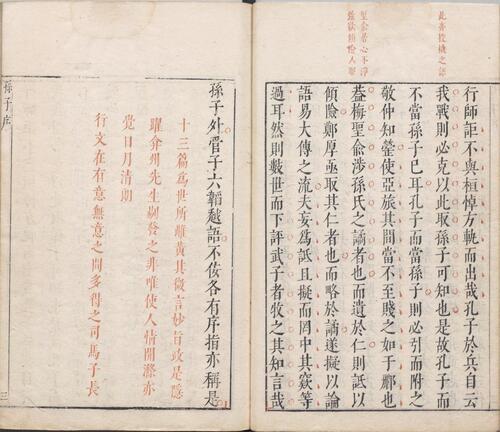 此亦投機之語
聖俞若心不淨
傾險人耶
行師詎不與桓悼方軌而出哉孔子於兵自云
我戰則必克以此取孫子可知也是故孔子而
不當孫子已耳孔子而當孫子則必引而附之
敬仲知罃使亞旅其間當不至賤之如于也
葢梅聖俞涉孫氏之譎者也而遺於仁則詆以
傾險鄭厚亟取其仁者也而略於譎遂擬以論
語易大傳之流夫妄為詆且擬而罔中其窽等
過耳然則數世而下評武子者牧之其知言哉
孫子外管子六韜越語不佞各有序指亦稱是
十三篇為世所雌黃其微言妙旨政是隱
躍弇州先生剏發之非唯使人情開滌亦
覺日月清朗
行文在有意無意之間多得之司馬子長
孫子序
三